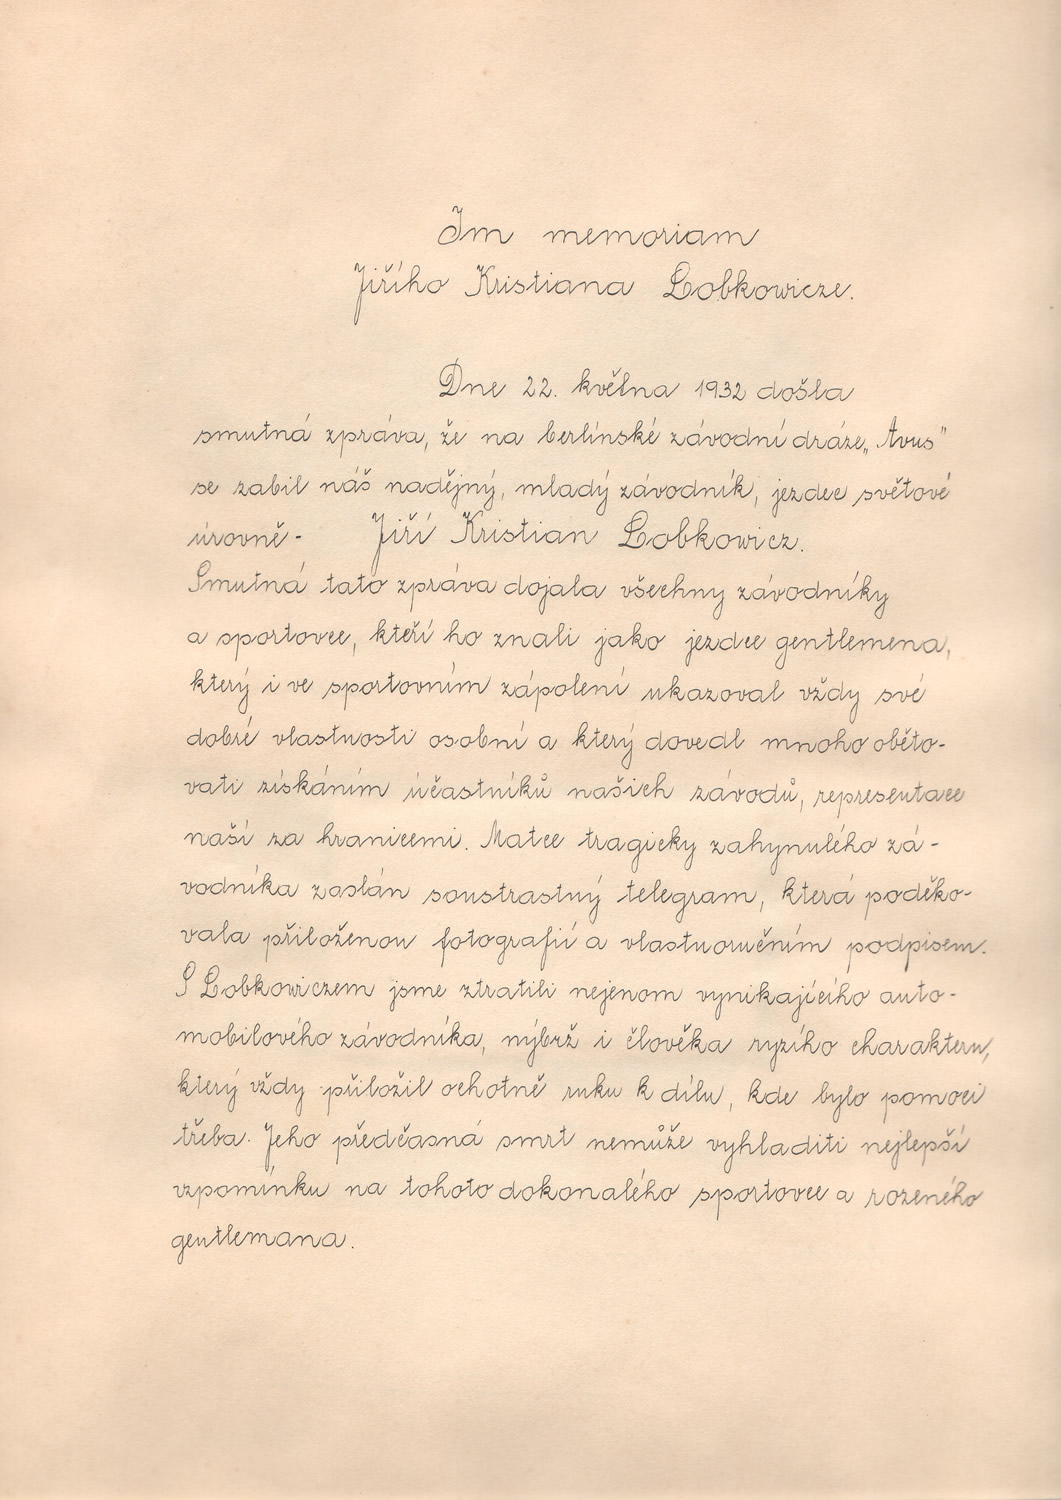 Im memoriam
Jiřího Kristiana Lobkowicze.
Dne 22. května 1932 došla
smutná zpráva, že na berlínské závodní dráze „Avus"
se zabil náš nadějný, mladý závodník, jezdec světové
úrovně - Jiří Kristian Lobkowicz.
Smutná tato zpráva dojala všechny závodníky
a sportovce, kteří ho znali jako jezdce gentlemena,
který i ve sportovním zápolení ukazoval vždy své
dobré vlastnosti osobní a který dovedl mnoho oběto-
vati získáním účastníků našich závodů, representace
naší za hranicemi. Matce tragicky zahynulého zá-
vodníka zaslán soustrastný telegram, která poděko-
vala přiloženou fotografií a vlastnoručním podpisem.
S Lobkowiczem jsme ztratili nejenom vynikajícího auto-
mobilového závodníka, nýbrž i člověka ryzího charakteru,
který vždy přiložil ochotně ruku k dílu, kde bylo pomoci
třeba. Jeho předčasná smrt nemůže vyhladiti nejlepší
vzpomínku na tohoto dokonalého sportovce a rozeného
gentlemana.